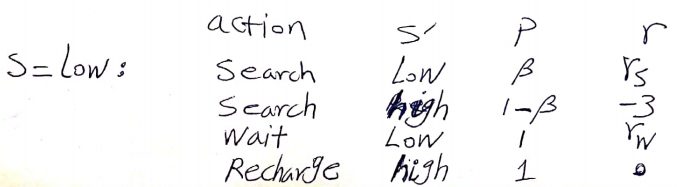 action S′ P r
S=Low: Search Low β rs
Search high 1-β -3
Wait Low 1 rw
Recharge high 1 0